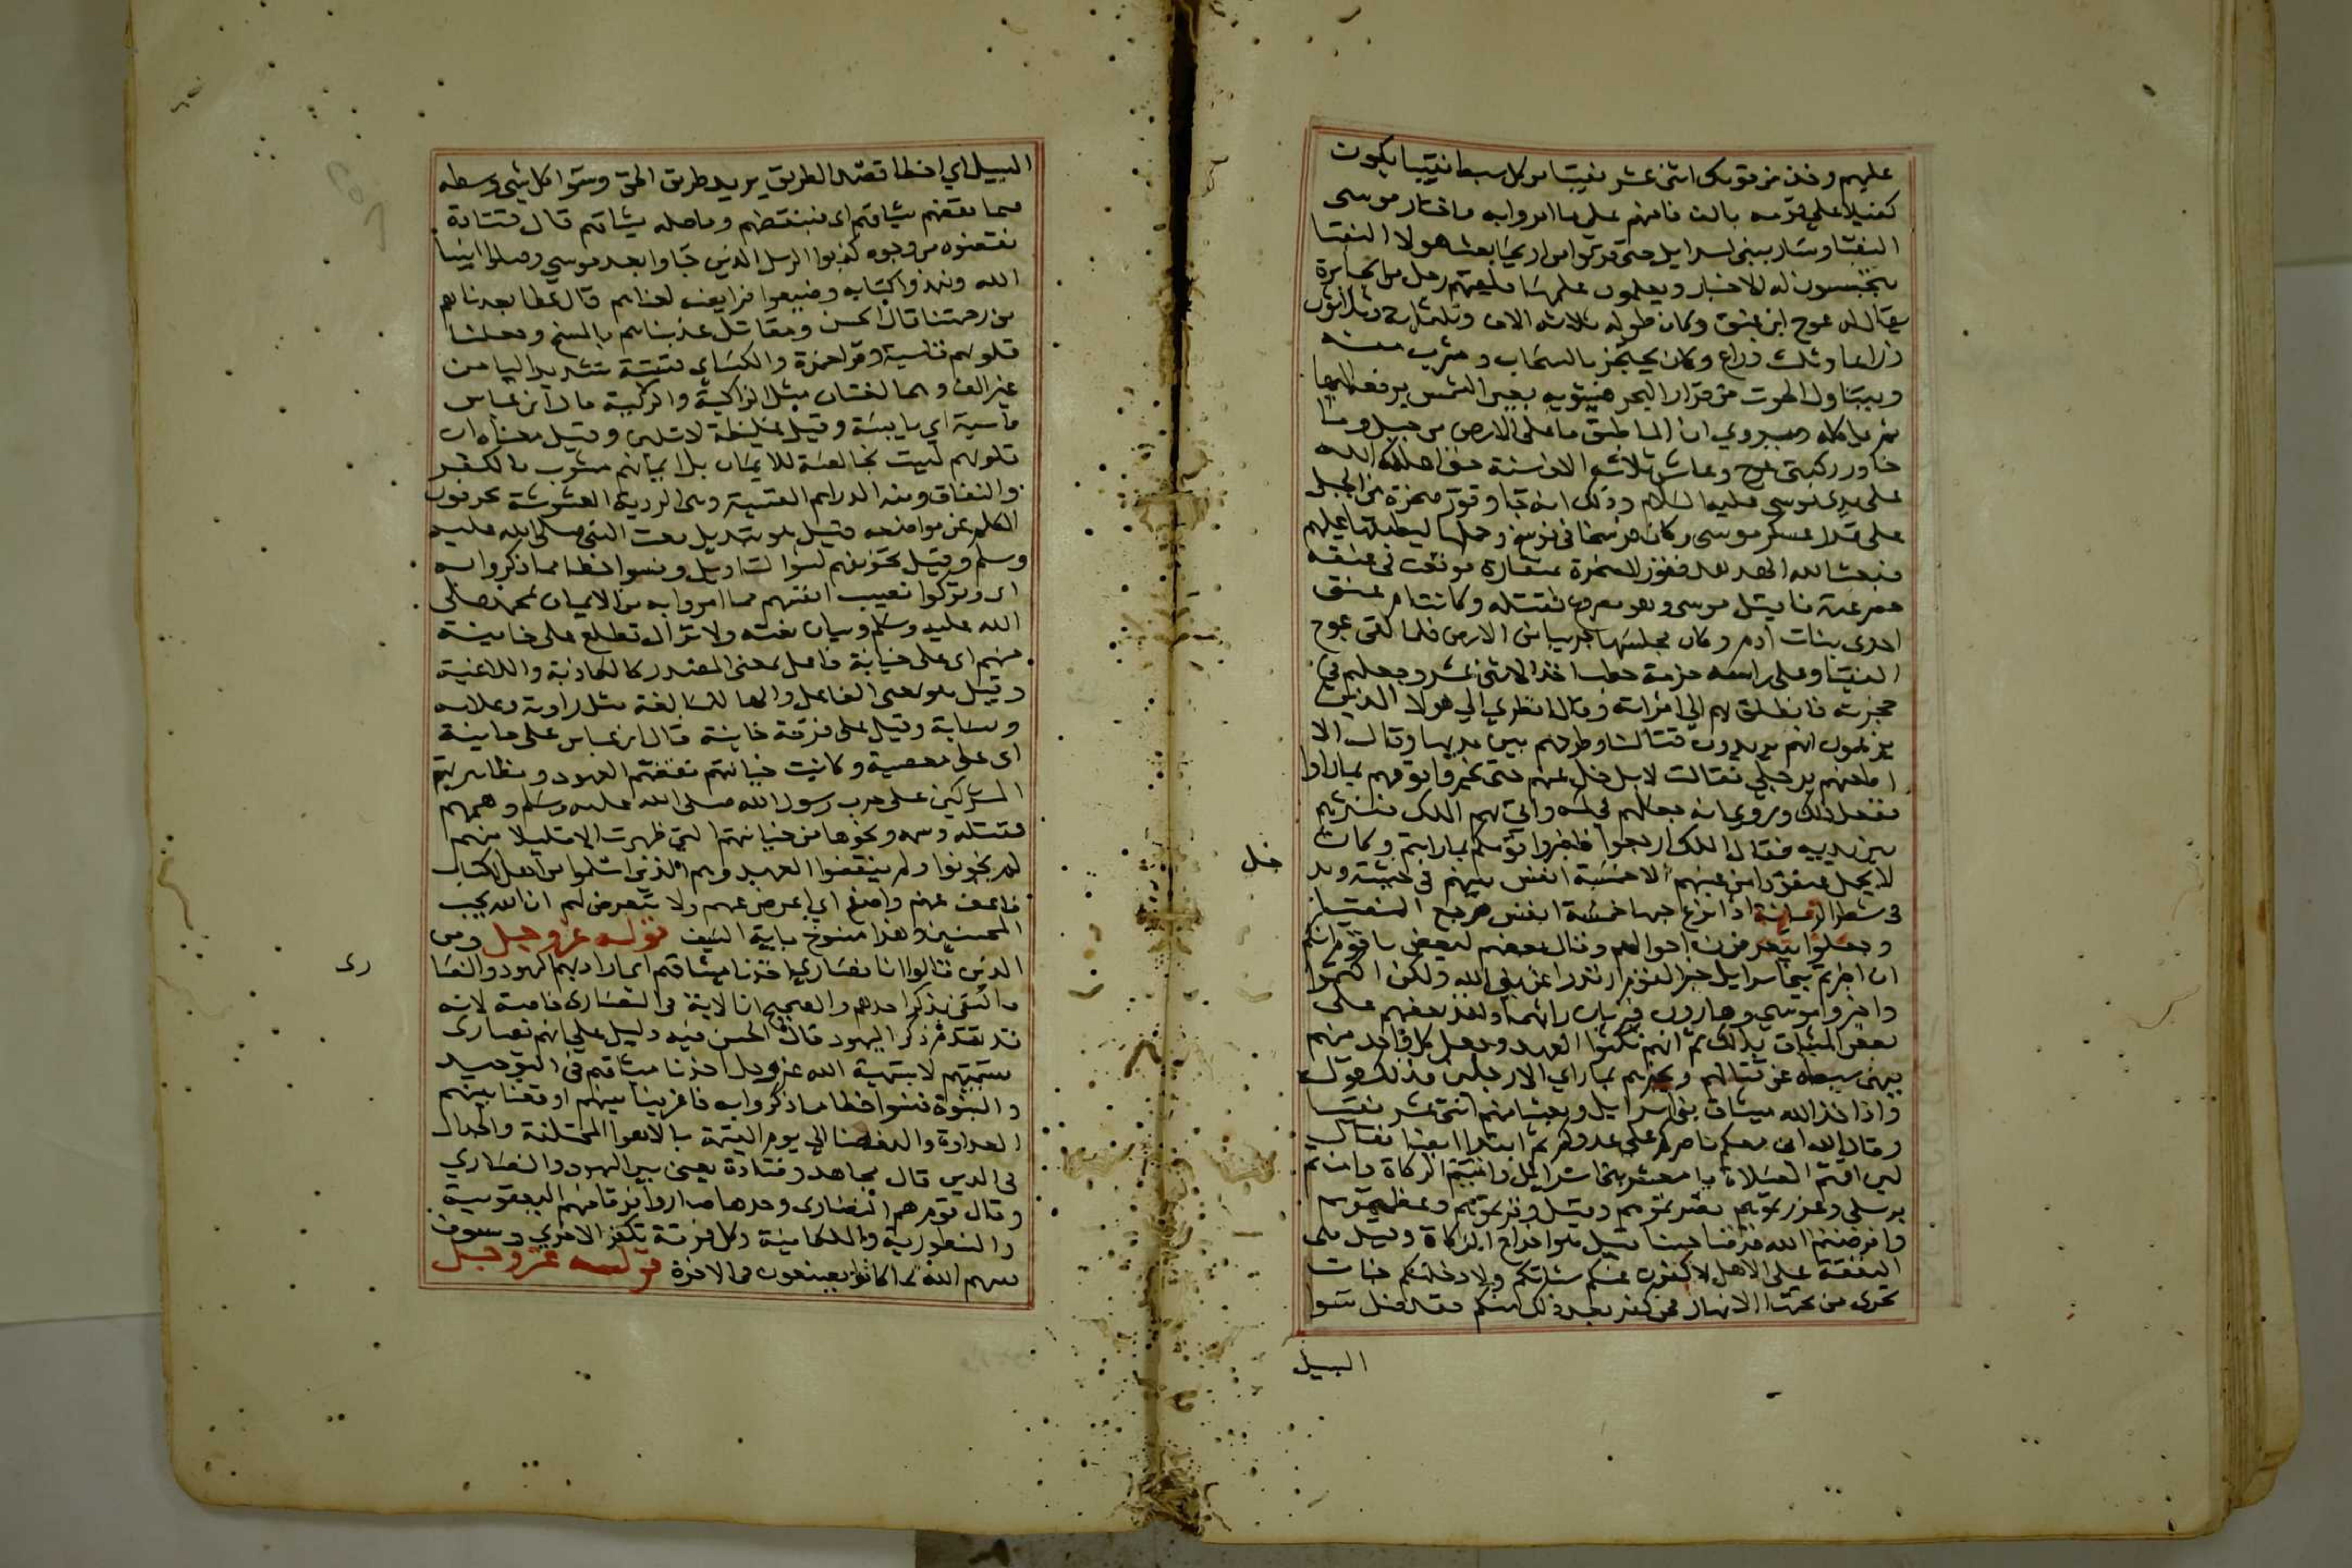 عليهم وخذ من قومك اثنى عشر نقيبا من كل سبط نقيبا يكون
كفيلا على قومه بالوفا منهم على ما امروا به فاختار موسى
النقبا وسار ببنى اسرايل حتى قربوا من اريحا بعث هولا النقبا
يتجسسون له الاخبار ويعلمون علمها فلقيهم رجل من الجبابرة
يقال له عوج ابن عنق وكان طوله ثلاثه الاف وثلثماية وثلاثون
ذراعا وثلث ذراع وكان يحتجز بالسحاب ويشرب منه
ويتناول الحوت من قرار البحر فيشويه بعين الشمس يرفعه اليها
ثم ياكله ويروي ان الما طبق ما على الارض من جبل وما
جاوز ركبتى عوج وعاش ثلاثه الاف سنة حتى اهلكه الله
على يدى موسى عليه السلام وذلك انه جا وقور صخرة من الجبل
على قدر عسكر موسى وكان فرسخا في فرسخ وحملها ليطبقها عليهم
فبعث الله الهدهد فقور الصخرة بمنقاره فوقعت في عنقه
فصرعته فاقبل موسى وهو مصروع فقتله وكانت ام عنق
احدى بنات ادم وكان مجلسها جريبا من الارض فلما لقى عوج
النقبا وعلى راسه حزمة حطب اخذ الاثنى عشر وجعلهم في
حجزته فانطلق بهم الى امراته وقال انظري الي هولا الذين
يزعمون انهم يريدون قتالنا وطرحهم بين يديها وقال الا
اطحنهم برجلي فقالت لا بل خل عنهم حتى يخبروا قومهم بما راوا
ففعل ذلك وروي انه جعلهم في كمه واتي بهم الملك فنثرهم
بين يديه فقال الملك ارجعوا فاخبروا قومكم بما رايتم وكان
لا يحمل عنقود من عنبهم الا خمسة انفس بينهم في خشبة ويدخل
في شطر الرمانة اذا نزع حبها خمسة انفس فرجع النقبا
وجعلوا يتعرفون احوالهم وقال بعضهم لبعض يا قوم انكم
ان اخبرتم بنى اسرايل خبر القوم ارتدوا عن نبى الله ولكن اكتموا
واخبروا موسي وهارون فيريان رايهما واخذ بعضهم على
بعض الميثاق بذلك ثم انهم نكثوا العهد وجعل كل واحد منهم
ينهى سبطه عن قتالهم ويخبرهم بما راي الا رجلين فذلك قوله
واذ اخذ الله ميثاق بنى اسرايل وبعثنا منهم اثنى عشر نقيبا
وقال الله انى معكم ناصركم على عدوكم ثم ابتدا ايضا فقال
لين اقمتم الصلاة يا معشر بنى اسرايل واتيتم الزكاة وامنتم
برسلي وعزرتموهم نصرتموهم وقيل وقرتموهم وعظمتموهم
واقرضتم الله قرضا حسنا قيل هو اخراج الزكاة وقيل هى
النفقة على الاهل لاكفرن عنكم سياتكم ولادخلنكم جنات
تجرى من تحتها الانهار فمن كفر بعد ذلك منكم فقد ضل سوا
السبيل
السبيل اي اخطا قصد الطريق يريد طريق الحق وسوا كل شي وسطه
فبما نقضهم ميثاقهم اى فبنقضهم وما صله ميثاقهم قال قتادة
نقضوه من وجوه كذبوا الرسل الذين جاوا بعد موسي وقتلوا انبيا
الله ونبذوا كتابه وضيعوا فرايضه لعناهم قال عطا ابعدناهم
من رحمتنا قال الحسن ومقاتل عذبناهم بالمسخ وجعلنا
قلوبهم قاسية وقرا حمزة والكساى قسية بتشديد اليا من
غير الف وهما لغتان مثل الزاكية والزكية قال ابن عباس
قاسية اي يابسة وقيل غليظة لا تلين وقيل معناه ان
قلوبهم ليست بخالصة للايمان بل ايمانهم مشوب بالكفر
والنفاق ومنه الدراهم القسية وهى الردية المغشوشة يحرفون
الكلم عن مواضعه قيل هو تبديل نعت النبى صلى الله عليه
وسلم وقيل تحريفهم لسوا التاويل ونسوا حظا مما ذكروا به
اى وتركوا نصيب انفسهم مما امروا به من الايمان بمحمد صلى
الله عليه وسلم وبيان نعته ولا تزال تطلع على خاينة
منهم اى على خيانة فاعل بمعنى المصدر كالكاذبة واللاغية
وقيل هو بمعنى الفاعل والها للمبالغة مثل راوية وعلامه
ونسابة وقيل على فرقة خاينة قال ابن عباس على خاينة
اى على معصية وكانت خيانتهم نقضهم العهود ومظاهرتهم
المشركين على حرب رسول الله صلى الله عليه وسلم وهمهم
بقتله وسمه ونحوها من خيانتهم التي ظهرت الا قليلا منهم
لم يخونوا ولم ينقضوا العهد وهم الذين اسلموا من اهل الكتاب
فاعف عنهم واصفح اي اعرض عنهم ولا تتعرض لهم ان الله يحب
المحسنين وهذا منسوخ باية السيف قوله عز وجل ومن
الذين قالوا انا نصاري اخذنا ميثاقهم قيل اراد بهم اليهود والنصارى
فاكتفى بذكر احدهم والصحيح ان الاية في النصارى خاصة لانه
قد تقدم ذكر اليهود قال الحسن فيه دليل على انهم نصارى
بتسميتهم لا بتسمية الله عز وجل اخذنا ميثاقهم في التوحيد
والنبوة فنسوا حظا مما ذكروا به فاغرينا بينهم اوقعنا بينهم
العداوة والبغضا الي يوم القيمة بالاهوا المختلفة والجدال
في الدين قال مجاهد وقتادة يعنى بين اليهود والنصاري
وقال قوم هم النصارى وحدها صاروا فرقا منهم اليعقوبية
والنسطورية والملكانية وكل فرقة تكفر الاخري وسوف
ينبيهم الله بما كانوا يصنعون في الاخرة قوله عز وجل